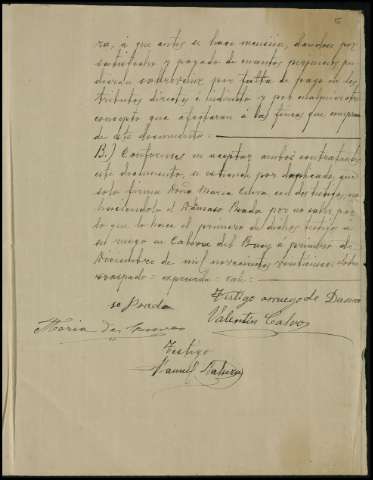 ra, á que antes se hace mención, dándose por
satisfecho y pagado de cuantos perjuicios pu
dieran sobrevenir por falta de pago de los
tributos directos é indirectos y por cualquier otro
concepto que afectaran á las fincas que
de este documento.
B.) Conformes en aceptar ambos contratantes
este documento, se extiende por duplicado, que
solo firma Doña Maria con dos testigos, no
haciendolo el Dámaso Prada por no saber, por
lo que lo hace el primero de dichos testigos á
su ruego en Cabeza del Buey á primero de
Diciembre de mil novecientos veinticinco. sobre
raspado = = vale =
Testigo á ruego de Damaso
Prada
Valentin Calvo
Maria
Testigo
Manuel